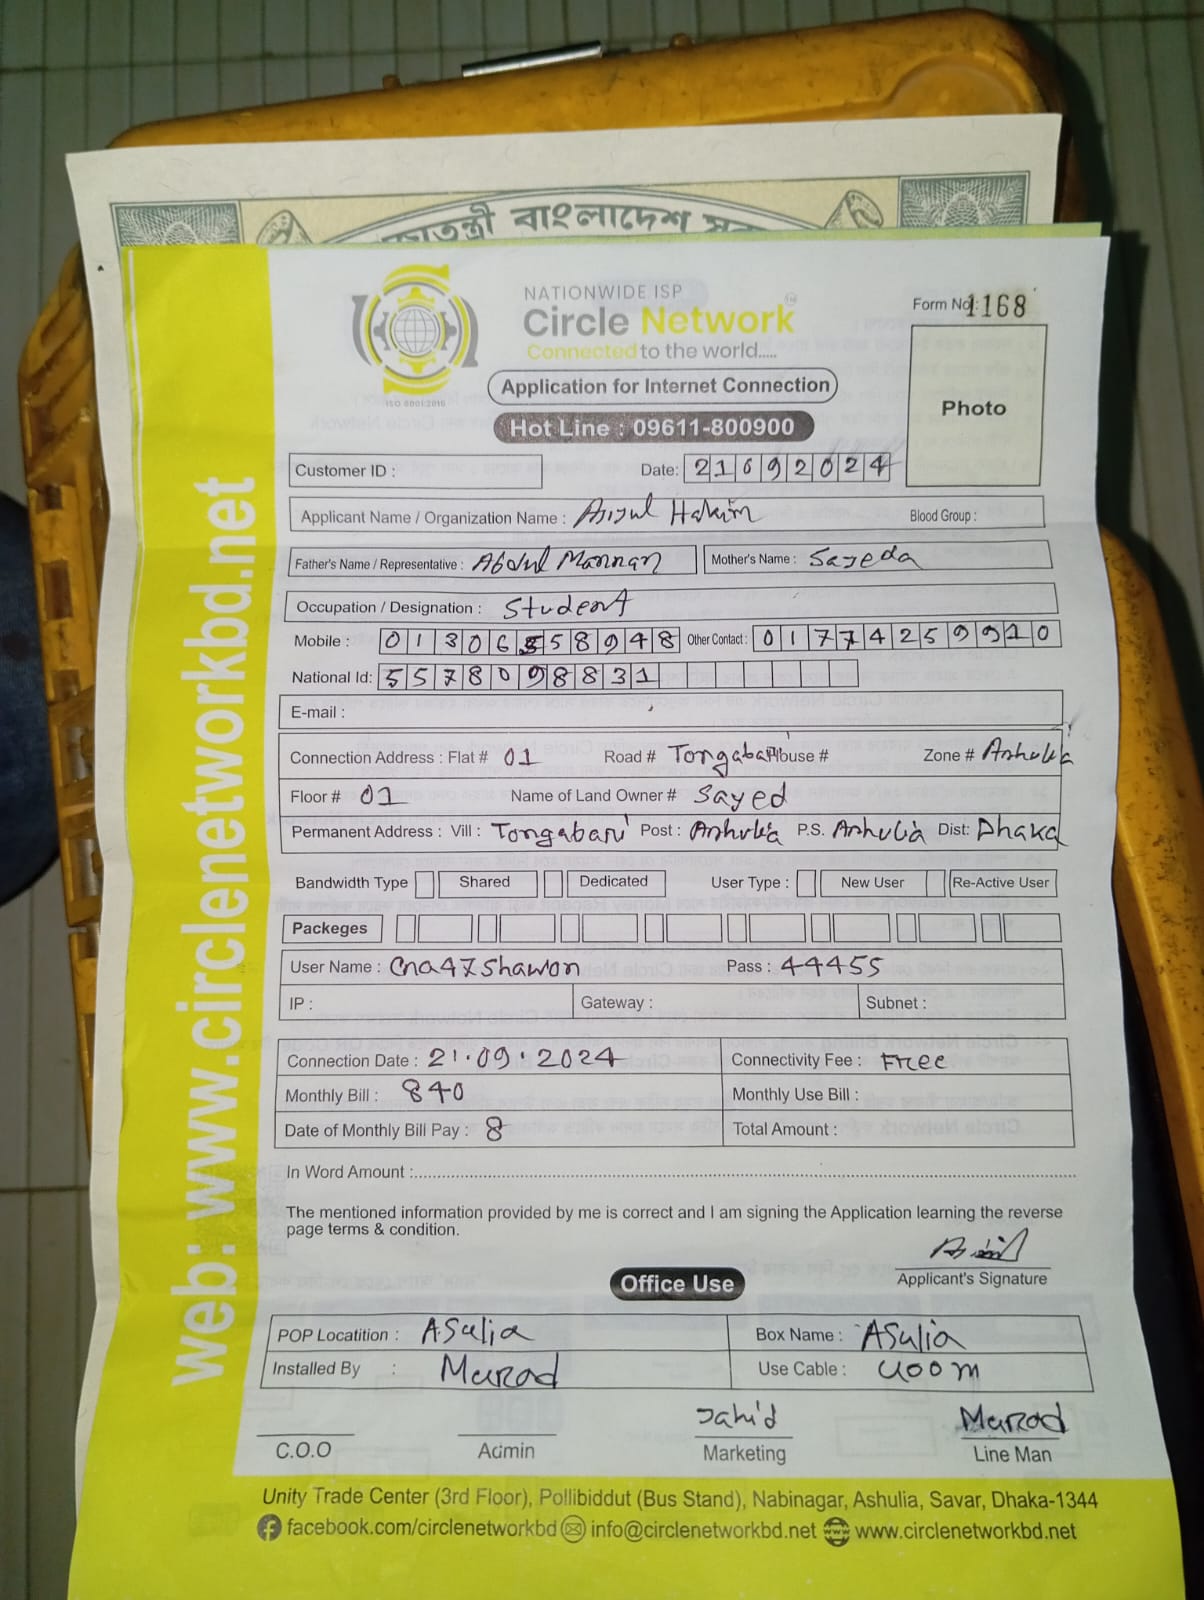 গণতন্ত্রী বাংলাদেশ
NATIONWIDE ISP
Circle Network
Connected to the world.....
ISO 9001:2015
Form No: 1168
Photo
Application for Internet Connection
Hot Line : 09611-800900
Customer ID :
Date: 21092024
Applicant Name / Organization Name : Azizul Hakim Blood Group :
Father's Name / Representative : Abdul Mannan Mother's Name : Sayeda
Occupation / Designation : Student
Mobile : 01306558948 Other Contact : 01774259910
National Id: 5578098831
E-mail :
Connection Address : Flat # 01 Road # Tongabari House # Zone # Ashulia
Floor # 01 Name of Land Owner # Sayed
Permanent Address : Vill : Tongabari Post : Ashulia P.S. Ashulia Dist: Dhaka
Bandwidth Type Shared Dedicated User Type : New User Re-Active User
Packeges
User Name : Cna47Shawon Pass : 44455
IP : Gateway : Subnet :
Connection Date : 21.09.2024 Connectivity Fee : Free
Monthly Bill : 840 Monthly Use Bill :
Date of Monthly Bill Pay : 8 Total Amount :
In Word Amount :
The mentioned information provided by me is correct and I am signing the Application learning the reverse
page terms & condition.
Applicant's Signature
Office Use
POP Locatition : ASulia Box Name : ASulia
Installed By : Murad Use Cable : 400m
Jahid Murad
C.O.O Admin Marketing Line Man
Unity Trade Center (3rd Floor), Pollibiddut (Bus Stand), Nabinagar, Ashulia, Savar, Dhaka-1344
facebook.com/circlenetworkbd info@circlenetworkbd.net www.circlenetworkbd.net
web: www.circlenetworkbd.net